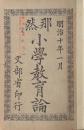 明治十年一月
那然
小學教育論
文部省印行